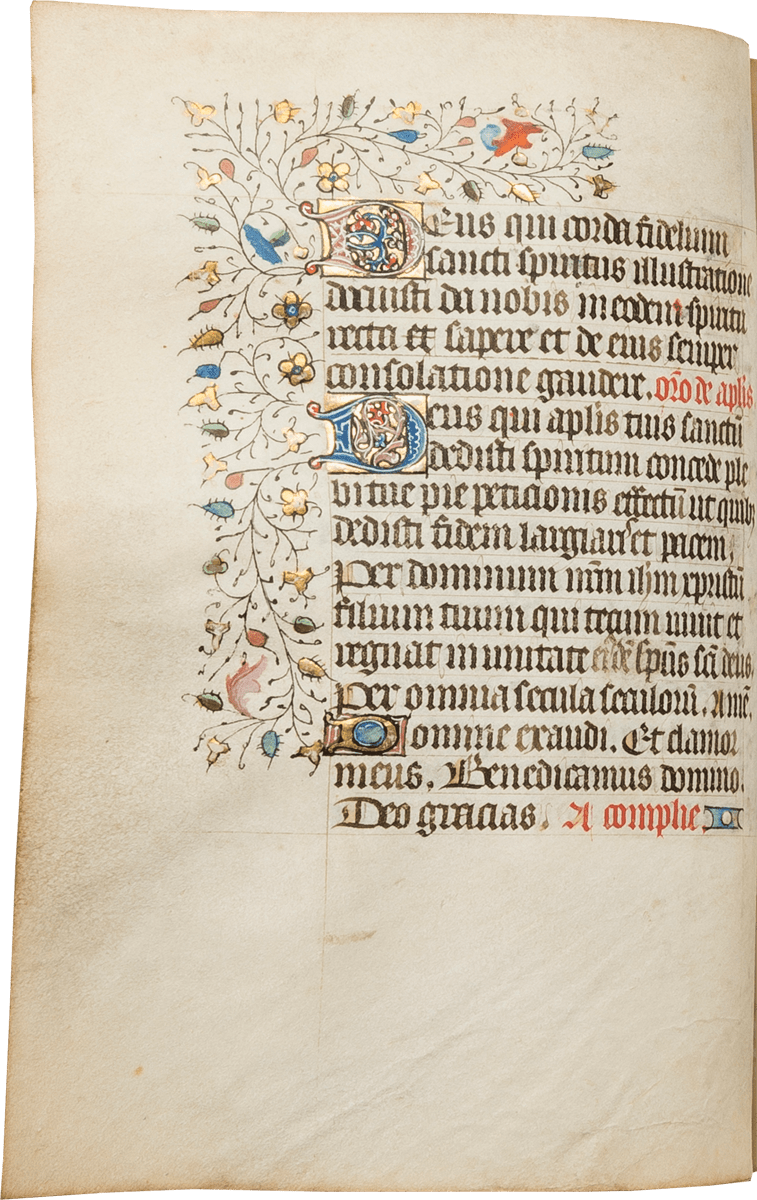 Deus qui corda fidelium
sancti spiritus illustratione
docuisti da nobis in eodem spiritu
recta et sapere et de eius semper
consolatione gaudere. Oro de aplis
Deus qui aplis tuis sanctu
dedisti spiritum concede ple
bi tue pie peticionis effectu ut quib
dedisti fidem largiaris et pacem,
Per dominum nrm ihm xpristu
filium tuum qui tecum uiuit et
regnat in unitate eiusde spus sci deus.
Per omnia secula seculoru. Ame.
Domine exaudi. Et clamor
meus. Benedicamus domino.
Deo gracias. A complie.